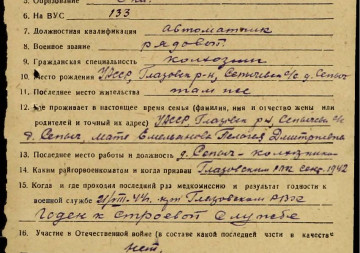 5. Образование
6. На ВУС 133
7. Должностная квалификация автоматчик
8. Военное звание рядовой
9. Гражданская специальность колхозник
10. Место рождения УАССР, Глазовск р-н, Сепычевск с/с д. Сепыч
11. Последнее место жительства там же
12. Где проживает в настоящее время семья (фамилия, имя и отчество жены или
родителей и точный их адрес) УАССР, Глазовск р-н, Сепычевск с/с
д. Сепыч, мать Емельянова Пелагея Дмитриевна
13. Последнее место работы и должность д. Сепыч - колхозник
14. Каким райгорвоенкоматом и когда призван Глазовским РВК сент. 1942
15. Когда и где проходил последний раз медкомиссию и результат годности к
военной службе 21/VIII-44 г. при Глазовском РВК
Годен к строевой службе
16. Участие в Отечественной войне (в составе какой последней части в качестве
нет.